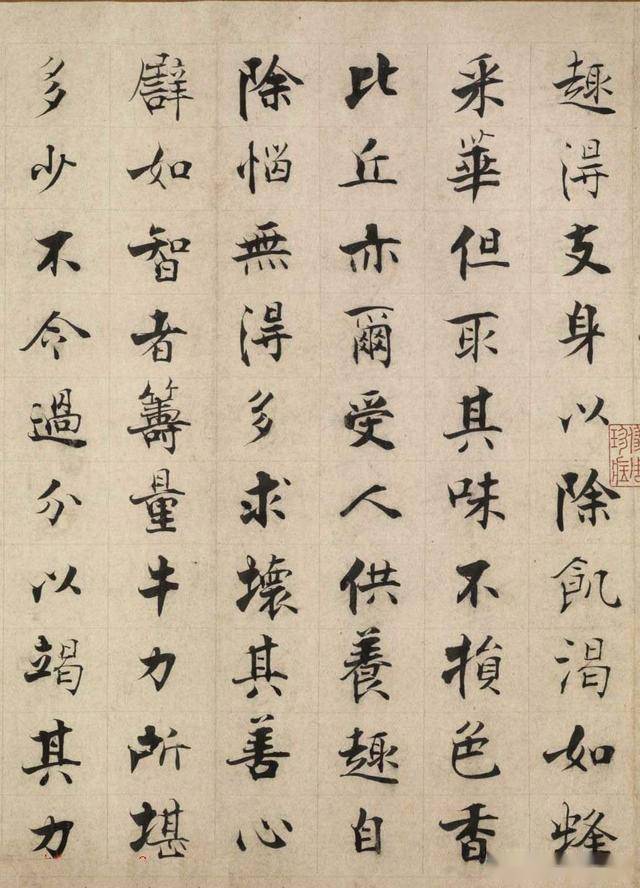 趣得支身以除飢渴如蜂
采華但取其味不損色香
比丘亦爾受人供養趣自
除惱無得多求壞其善心
譬如智者籌量牛力所堪
多少不令過分以竭其力